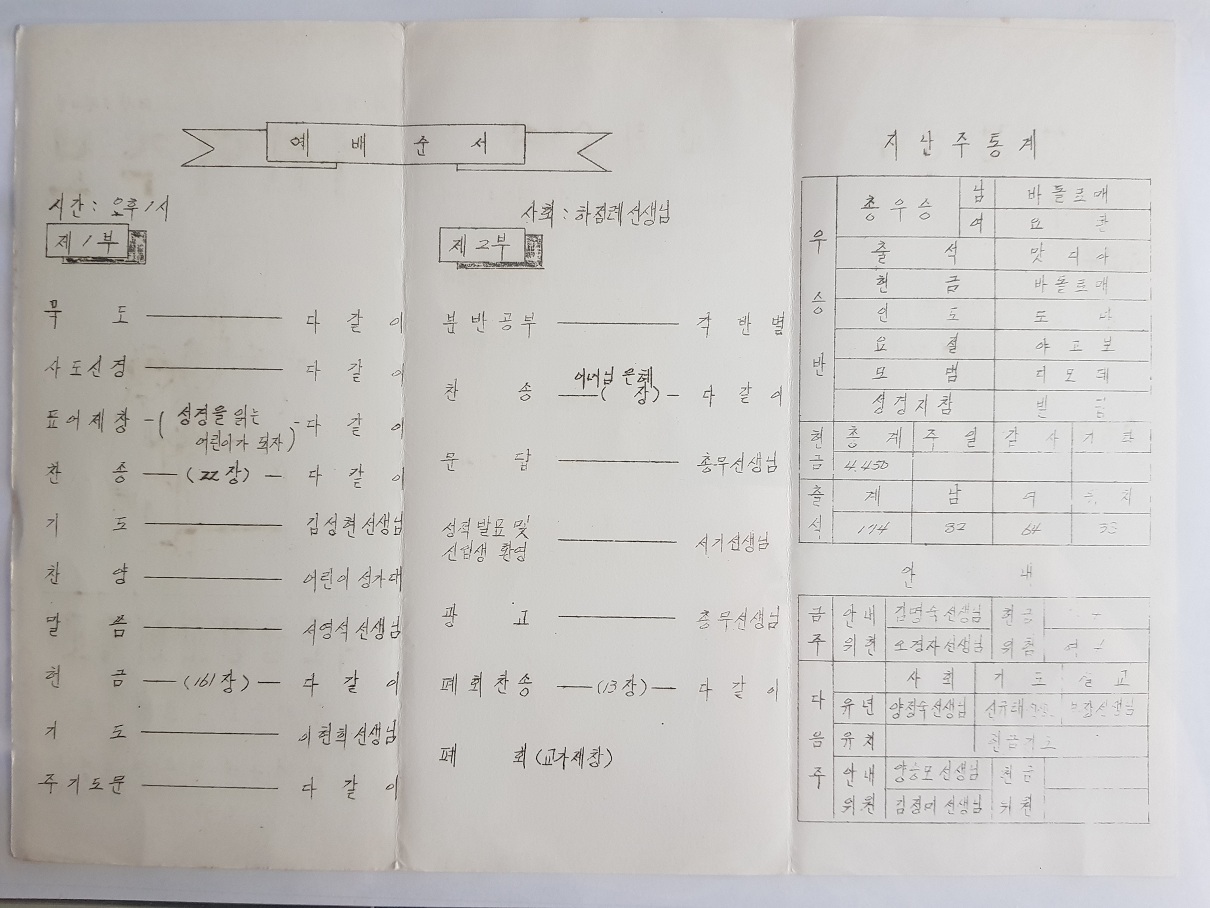 예 배 순 서
시간: 오후 1시
제 1 부
묵 도 다 갈 이
사도신경 다 갈 이
표어제창 -( 성경을 읽는 어린이가 되자 )- 다 갈 이
찬 송 -(22장)- 다 갈 이
기 도 김성현 선생님
찬 양 어린이 성가대
말 씀 서영석 선생님
헌 금 -(161장)- 다 갈 이
기 도 이현희 선생님
주기도문 다 갈 이
사회: 하점례 선생님
제 2 부
분반공부 각 반 별
찬 송 -(어머님 은혜 장)- 다 갈 이
문 답 총무선생님
성적 발표 및
신입생 환영 서기선생님
광 고 총무선생님
폐회찬송 -(13장)- 다 갈 이
폐 회 (교가제창)
지 난 주 통 계
우 승 반
총 우 승 남 바돌로매
여 요 한
출 석 맛 디 아
헌 금 바돌로매
인 도 도 마
요 절 야 고 보
모 범 디 모 데
성경지참 빌 립
헌 금 총 계 주 일 감 사 기 타
4,450
출 석 계 남 여 유 치
174 82 64
안 내
금 주 안내 위원 김명숙 선생님 헌금 위원
오경자 선생님 여
다 음 주 사 회 기 도 설 교
유년 양정숙 선생님 선규태
유치 헌금기도
안내 위원 양승모 선생님 헌금 위원
김정미 선생님